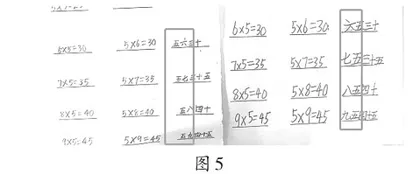 6×5=30 5×6=30 五六三十
7×5=35 5×7=35 五七三十五
8×5=40 5×8=40 五八四十
9×5=45 5×9=45 五九四十五
6×5=30 5×6=30 六五三十
7×5=35 5×7=35 七五三十五
8×5=40 5×8=40 八五四十
9×5=45 5×9=45 九五四十五
图5